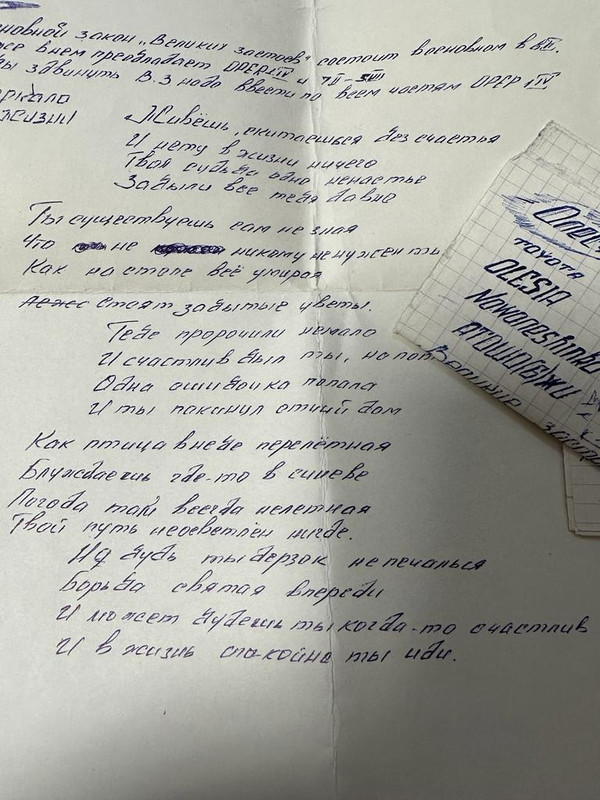 новной закон „Великих застоев" состоит в основном в
же в нем преобладает OPEP IV и 7II - 5III
бы задвинуть В.З надо ввести по всем частям OPEP IV.
еркало
жизни
Живёшь, скитаешься без счастья
И нету в жизни ничего
Твоя судьба одно ненастье
Забыли все тебя давно
Ты существуешь сам не зная
Что не никому не нужен ты
Как на столе всё умирая
Стоят забытые цветы.
Тебе пророчили немало
И счастлив был ты, но пот
Одна ошибочка попала
И ты покинул отчий дом
Как птица в небе перелётная
Блуждаешь где-то в синеве
Погода там всегда нелетная
Твой путь неосветлён нигде.
Но будь ты дерзок не печалься
Борьба святая впереди
И может будешь ты когда-то счастлив
И в жизнь спокойно ты иди.
TOYOTA
OLESIA